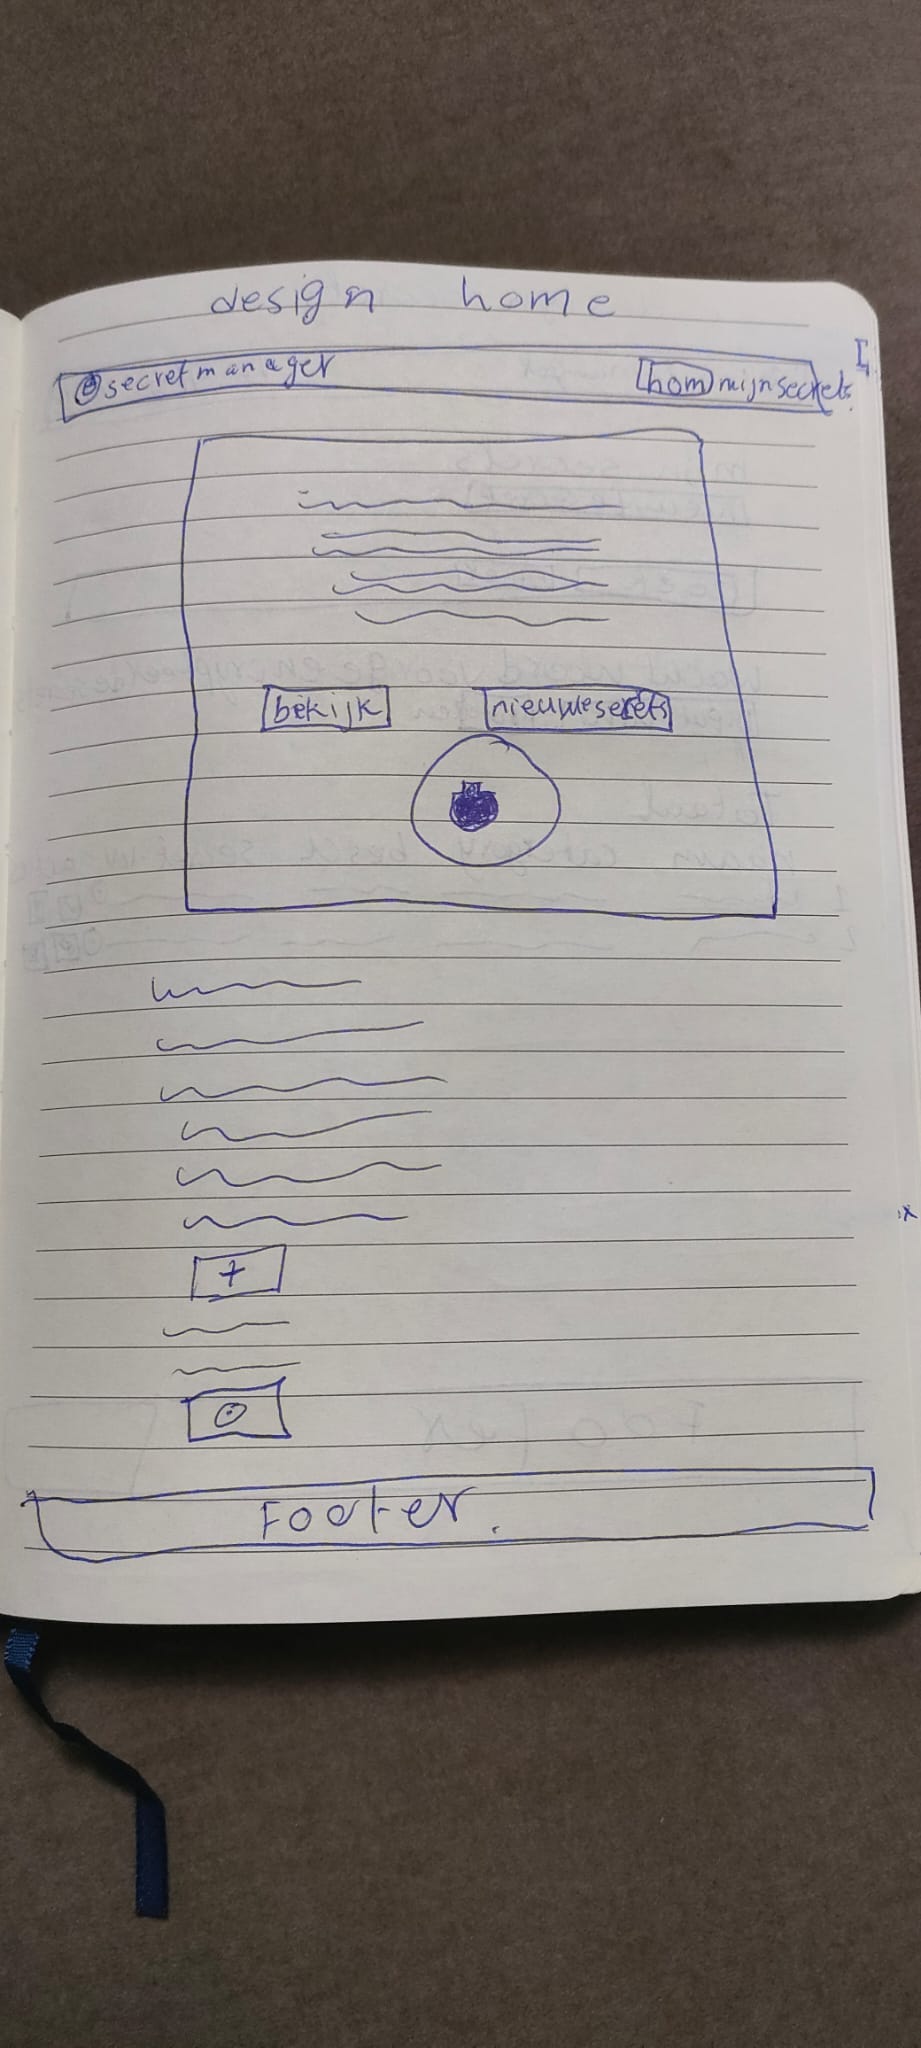 design home
secretmanager hom mijnsecrets
bekijk nieuwesecrets
+
Footer.